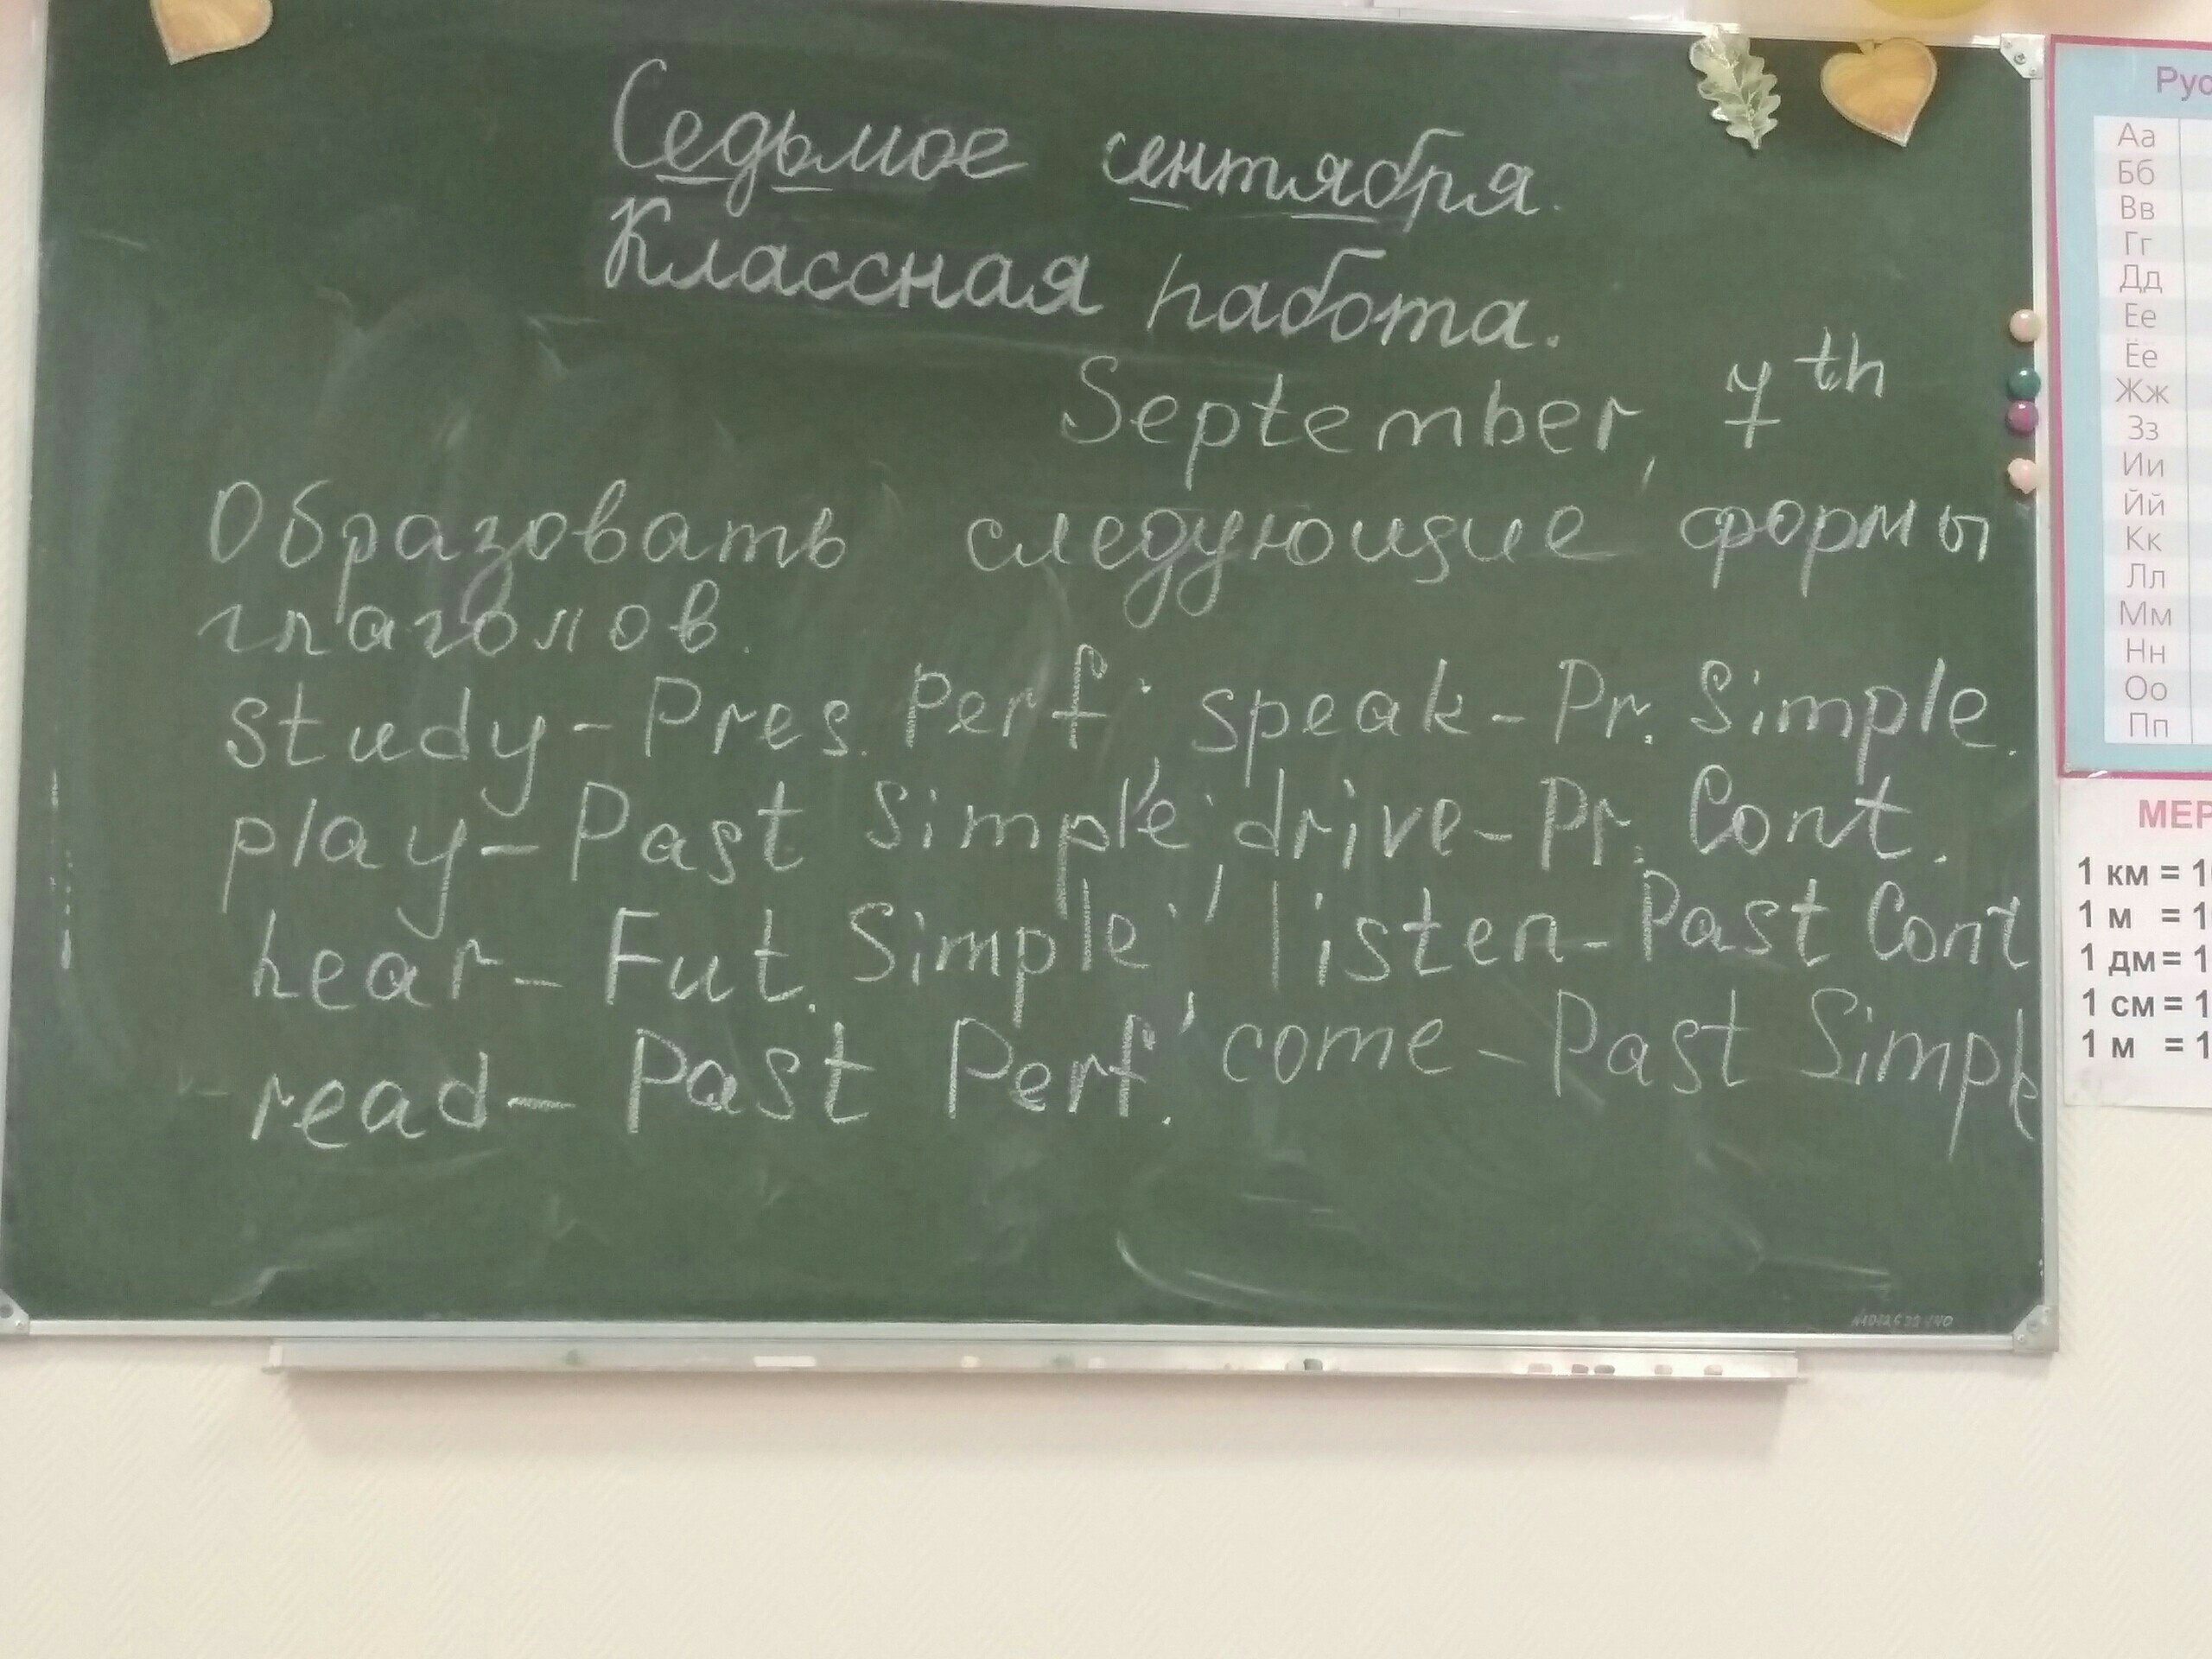 Седьмое сентября.
Классная работа.
September, 7th
Образовать следующие формы
глаголов.
study - Pres. Perf.; speak - Pr. Simple.
play - Past Simple; drive - Pr. Cont.
hear - Fut. Simple; listen - Past Cont
read - Past Perf.; come - Past Simple
Рус
Аа
Бб
Вв
Гг
Дд
Ее
Ёё
Жж
Зз
Ии
Йй
Кк
Лл
Мм
Нн
Оо
Пп
МЕР
1 км = 1
1 м = 1
1 дм = 1
1 см = 1
1 м = 1